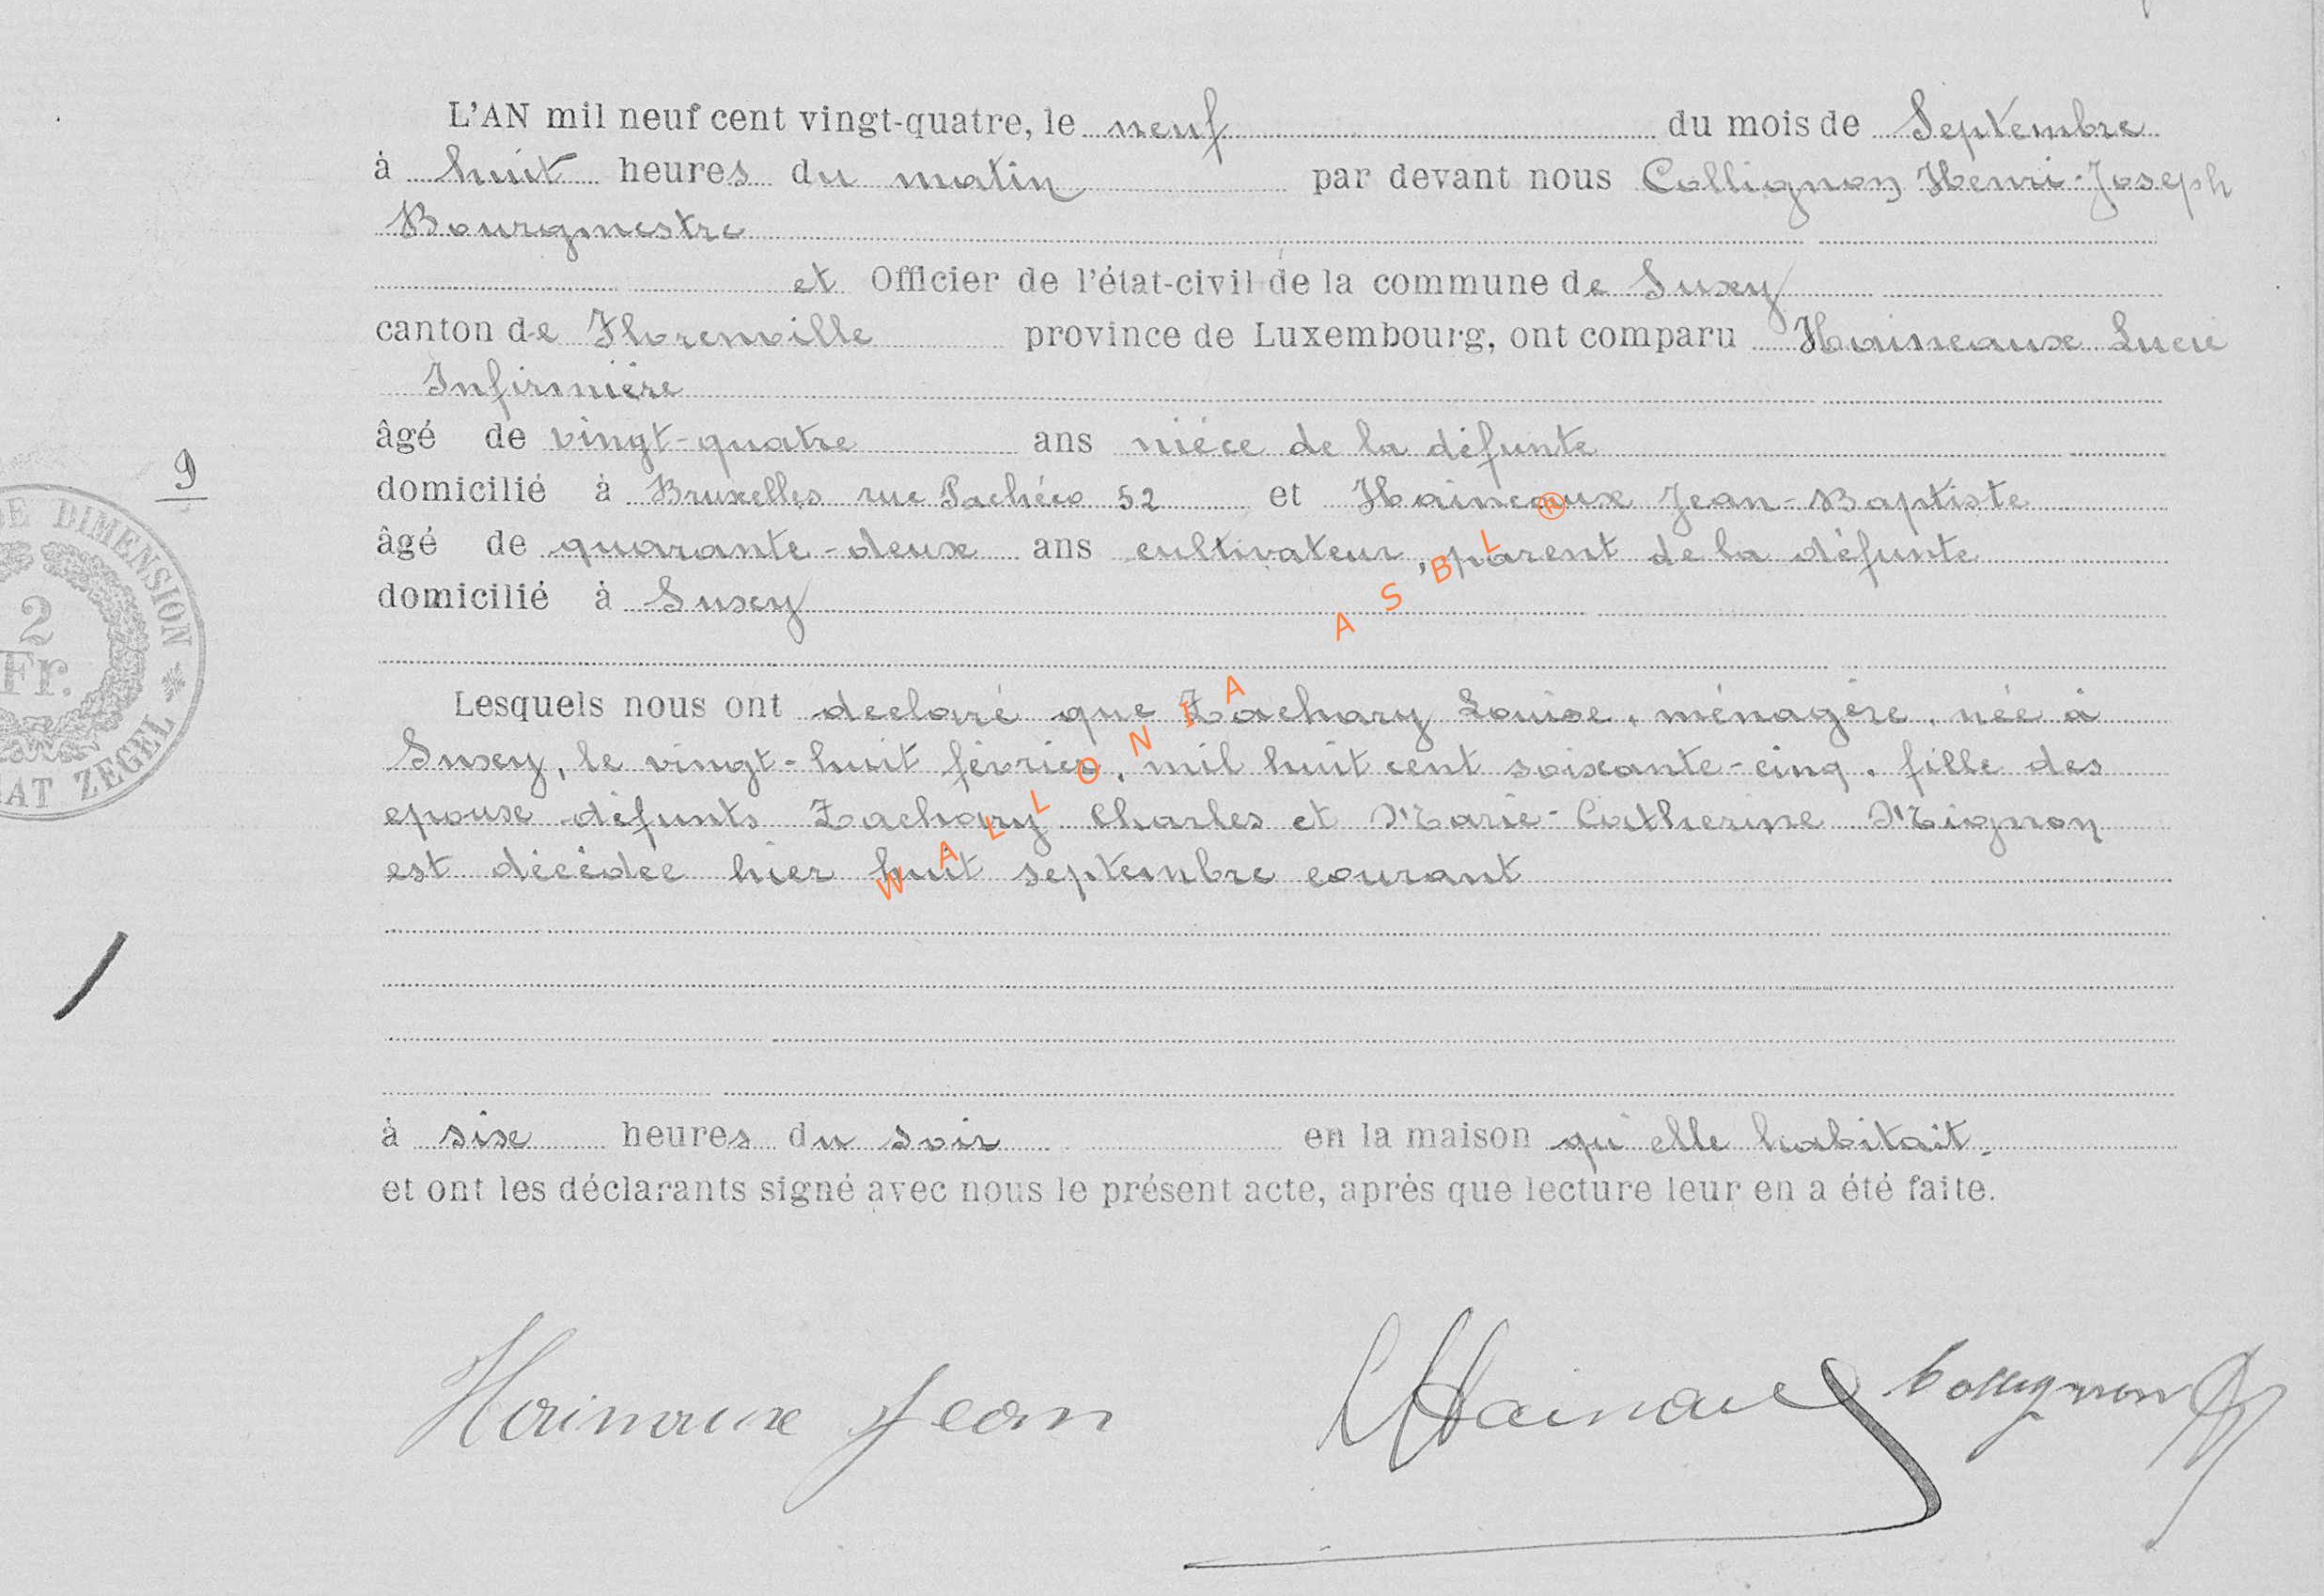 L'AN mil neuf cent vingt-quatre, le neuf du mois de Septembre
à huit heures du matin par devant nous Collignon Henri-Joseph
Bourgmestre
et Officier de l'état-civil de la commune de Suxey
canton de Florenville province de Luxembourg, ont comparu Haineaux Lucie
Infirmière
âgé de vingt-quatre ans niéce de la défunte
9
domicilié à Bruxelles rue Pachéco 52 et Haineaux Jean-Baptiste
âgé de quarante-deux ans cultivateur, parent de la défunte
domicilié à Suxey
DE DIMENSION
2
Fr.
ZEGEL
Lesquels nous ont declaré que Zachary Louise, ménagère, née à
Suxey, le vingt-huit février, mil huit cent soixante-cinq. fille des
epoux défunts Zachary Charles et Marie-Catherine Mignon
est décédée hier huit septembre courant
WALLONIA ASBL ®
à six heures du soir en la maison qu'elle habitait.
et ont les déclarants signé avec nous le présent acte, après que lecture leur en a été faite.
Hainaux Jean LHainaux Collignon